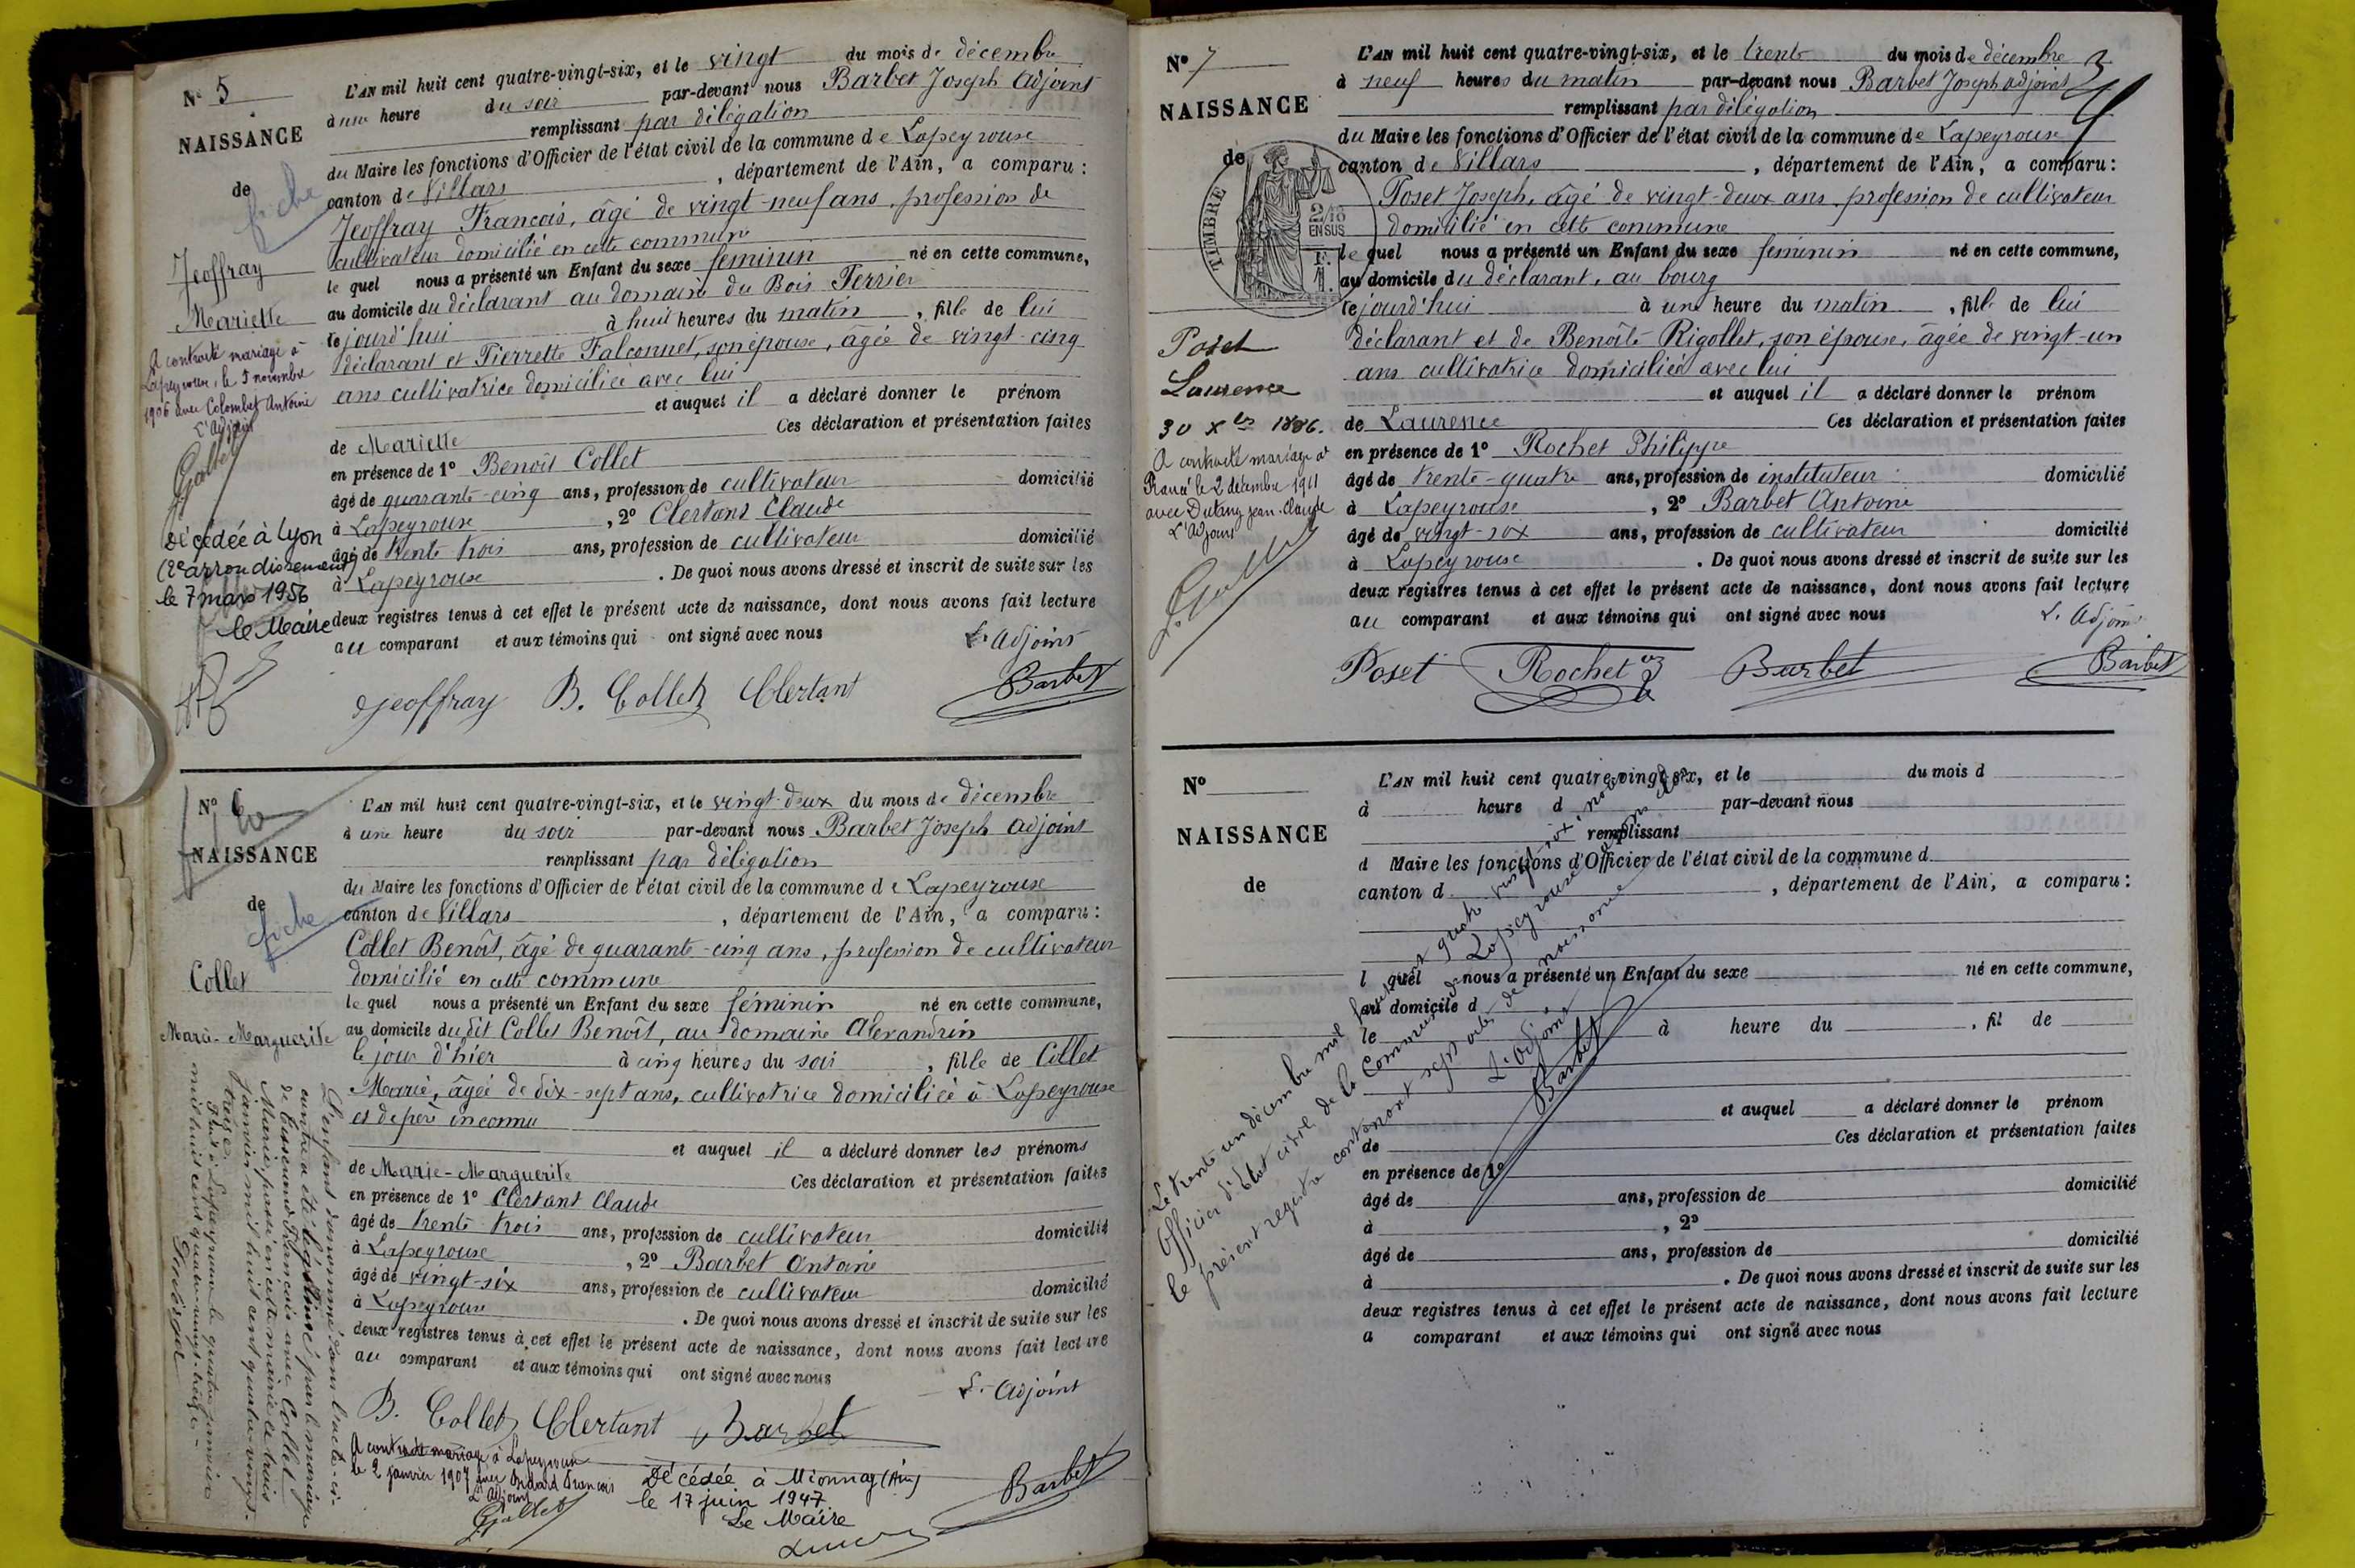 N° 5
NAISSANCE
de
fiche
Jeoffray
Mariette
A contracté mariage à
Lapeyrouse, le 5 novembre
1906 avec Colombet Antoine
L'Adjoint
Gallet
Décédée à Lyon
(2e arrondissement)
le 7 mars 1956
le Maire
L'AN mil huit cent quatre-vingt-six, et le vingt du mois de décembre
à une heure du soir par-devant nous Barbet Joseph Adjoint
remplissant par délégation
du Maire les fonctions d'Officier de l'état civil de la commune de Lapeyrouse
canton de Villars, département de l'Ain, a comparu:
Jeoffray François, âgé de vingt-neuf ans, profession de
cultivateur domicilié en cette commune
le quel nous a présenté un Enfant du sexe féminin né en cette commune,
au domicile du déclarant au domaine du Bois Terrier
ce jourd'hui à huit heures du matin, fille de lui
déclarant et Pierrette Falconnet, son épouse, âgée de vingt-cinq
ans cultivatrice domiciliée avec lui
et auquel il a déclaré donner le prénom
de Mariette Ces déclaration et présentation faites
en présence de 1° Benoît Collet
âgé de quarante-cinq ans, profession de cultivateur domicilié
à Lapeyrouse, 2° Clertant Claude
âgé de trente trois ans, profession de cultivateur domicilié
à Lapeyrouse. De quoi nous avons dressé et inscrit de suite sur les
deux registres tenus à cet effet le présent acte de naissance, dont nous avons fait lecture
au comparant et aux témoins qui ont signé avec nous
L'Adjoint
Jeoffray B. Collet Clertant Barbet
N° 6
NAISSANCE
de
fiche
Collet
Marie-Marguerite
L'enfant dénommé dans l'acte ci-
contre a été légitimé par le mariage
de François avec Collet
Marie, passé en cette mairie le trois
Janvier mil huit cent quatre-vingt-
treize.
Fait à Lapeyrouse le quatre janvier
mil huit cent quatre-vingt-treize.-
L'AN mil huit cent quatre-vingt-six, et le vingt-deux du mois de décembre
à une heure du soir par-devant nous Barbet Joseph Adjoint
remplissant par délégation
du Maire les fonctions d'Officier de l'état civil de la commune de Lapeyrouse
canton de Villars, département de l'Ain, a comparu:
Collet Benoît, âgé de quarante-cinq ans, profession de cultivateur
domicilié en cette commune
le quel nous a présenté un Enfant du sexe féminin né en cette commune,
au domicile du dit Collet Benoît, au domaine Alexandrin
le jour d'hier à cinq heures du soir, fille de Collet
Marie, âgée de dix-sept ans, cultivatrice domiciliée à Lapeyrouse
et de père inconnu
et auquel il a déclaré donner les prénoms
de Marie-Marguerite Ces déclaration et présentation faites
en présence de 1° Clertant Claude
âgé de trente trois ans, profession de cultivateur domicilié
à Lapeyrouse, 2° Barbet Antoine
âgé de vingt-six ans, profession de cultivateur domicilié
à Lapeyrouse. De quoi nous avons dressé et inscrit de suite sur les
deux registres tenus à cet effet le présent acte de naissance, dont nous avons fait lecture
au comparant et aux témoins qui ont signé avec nous
L'Adjoint
B. Collet Clertant Barbet
Barbet
A contracté mariage à Lapeyrouse
le 2 janvier 1907 avec François
L'Adjoint
Gallet
Décédée à Mionnay (Ain)
le 17 juin 1947.
Le Maire
N° 7
NAISSANCE
de
TIMBRE
2/10
EN SUS
Poset
Laurence
30 Xbre 1886.
A contracté mariage à
le 2 décembre 1911
avec Jean-Claude
L'Adjoint
L'AN mil huit cent quatre-vingt-six, et le trente du mois de décembre
à neuf heures du matin par-devant nous Barbet Joseph adjoint
remplissant par délégation
du Maire les fonctions d'Officier de l'état civil de la commune de Lapeyrouse
canton de Villars, département de l'Ain, a comparu:
Poset Joseph, âgé de vingt-deux ans, profession de cultivateur
domicilié en cette commune
le quel nous a présenté un Enfant du sexe féminin né en cette commune,
au domicile du déclarant, au bourg
ce jourd'hui à une heure du matin, fille de lui
déclarant et de Benoîte Rigollet, son épouse, âgée de vingt-un
ans cultivatrice domiciliée avec lui
et auquel il a déclaré donner le prénom
de Laurence Ces déclaration et présentation faites
en présence de 1° Rochet Philippe
âgé de trente-quatre ans, profession de instituteur domicilié
à Lapeyrouse, 2° Barbet Antoine
âgé de vingt-six ans, profession de cultivateur domicilié
à Lapeyrouse. De quoi nous avons dressé et inscrit de suite sur les
deux registres tenus à cet effet le présent acte de naissance, dont nous avons fait lecture
au comparant et aux témoins qui ont signé avec nous
L'Adjoint
Poset Rochet Barbet Barbet
N°
NAISSANCE
de
L'AN mil huit cent quatre-vingt-six, et le du mois d
à heure d par-devant nous
remplissant
d Maire les fonctions d'Officier de l'état civil de la commune d
canton d, département de l'Ain, a comparu:
l quel nous a présenté un Enfant du sexe né en cette commune,
au domicile d
le à heure du, fil de
et auquel a déclaré donner le prénom
de Ces déclaration et présentation faites
en présence de 1°
âgé de ans, profession de domicilié
à, 2°
âgé de ans, profession de domicilié
à. De quoi nous avons dressé et inscrit de suite sur les
deux registres tenus à cet effet le présent acte de naissance, dont nous avons fait lecture
a comparant et aux témoins qui ont signé avec nous
Le trente un décembre mil huit cent quatre vingt-six, nous
Officier d'Etat civil de la Commune de Lapeyrouse
le présent registre contenant sept actes de naissance
L'Adjoint
Barbet